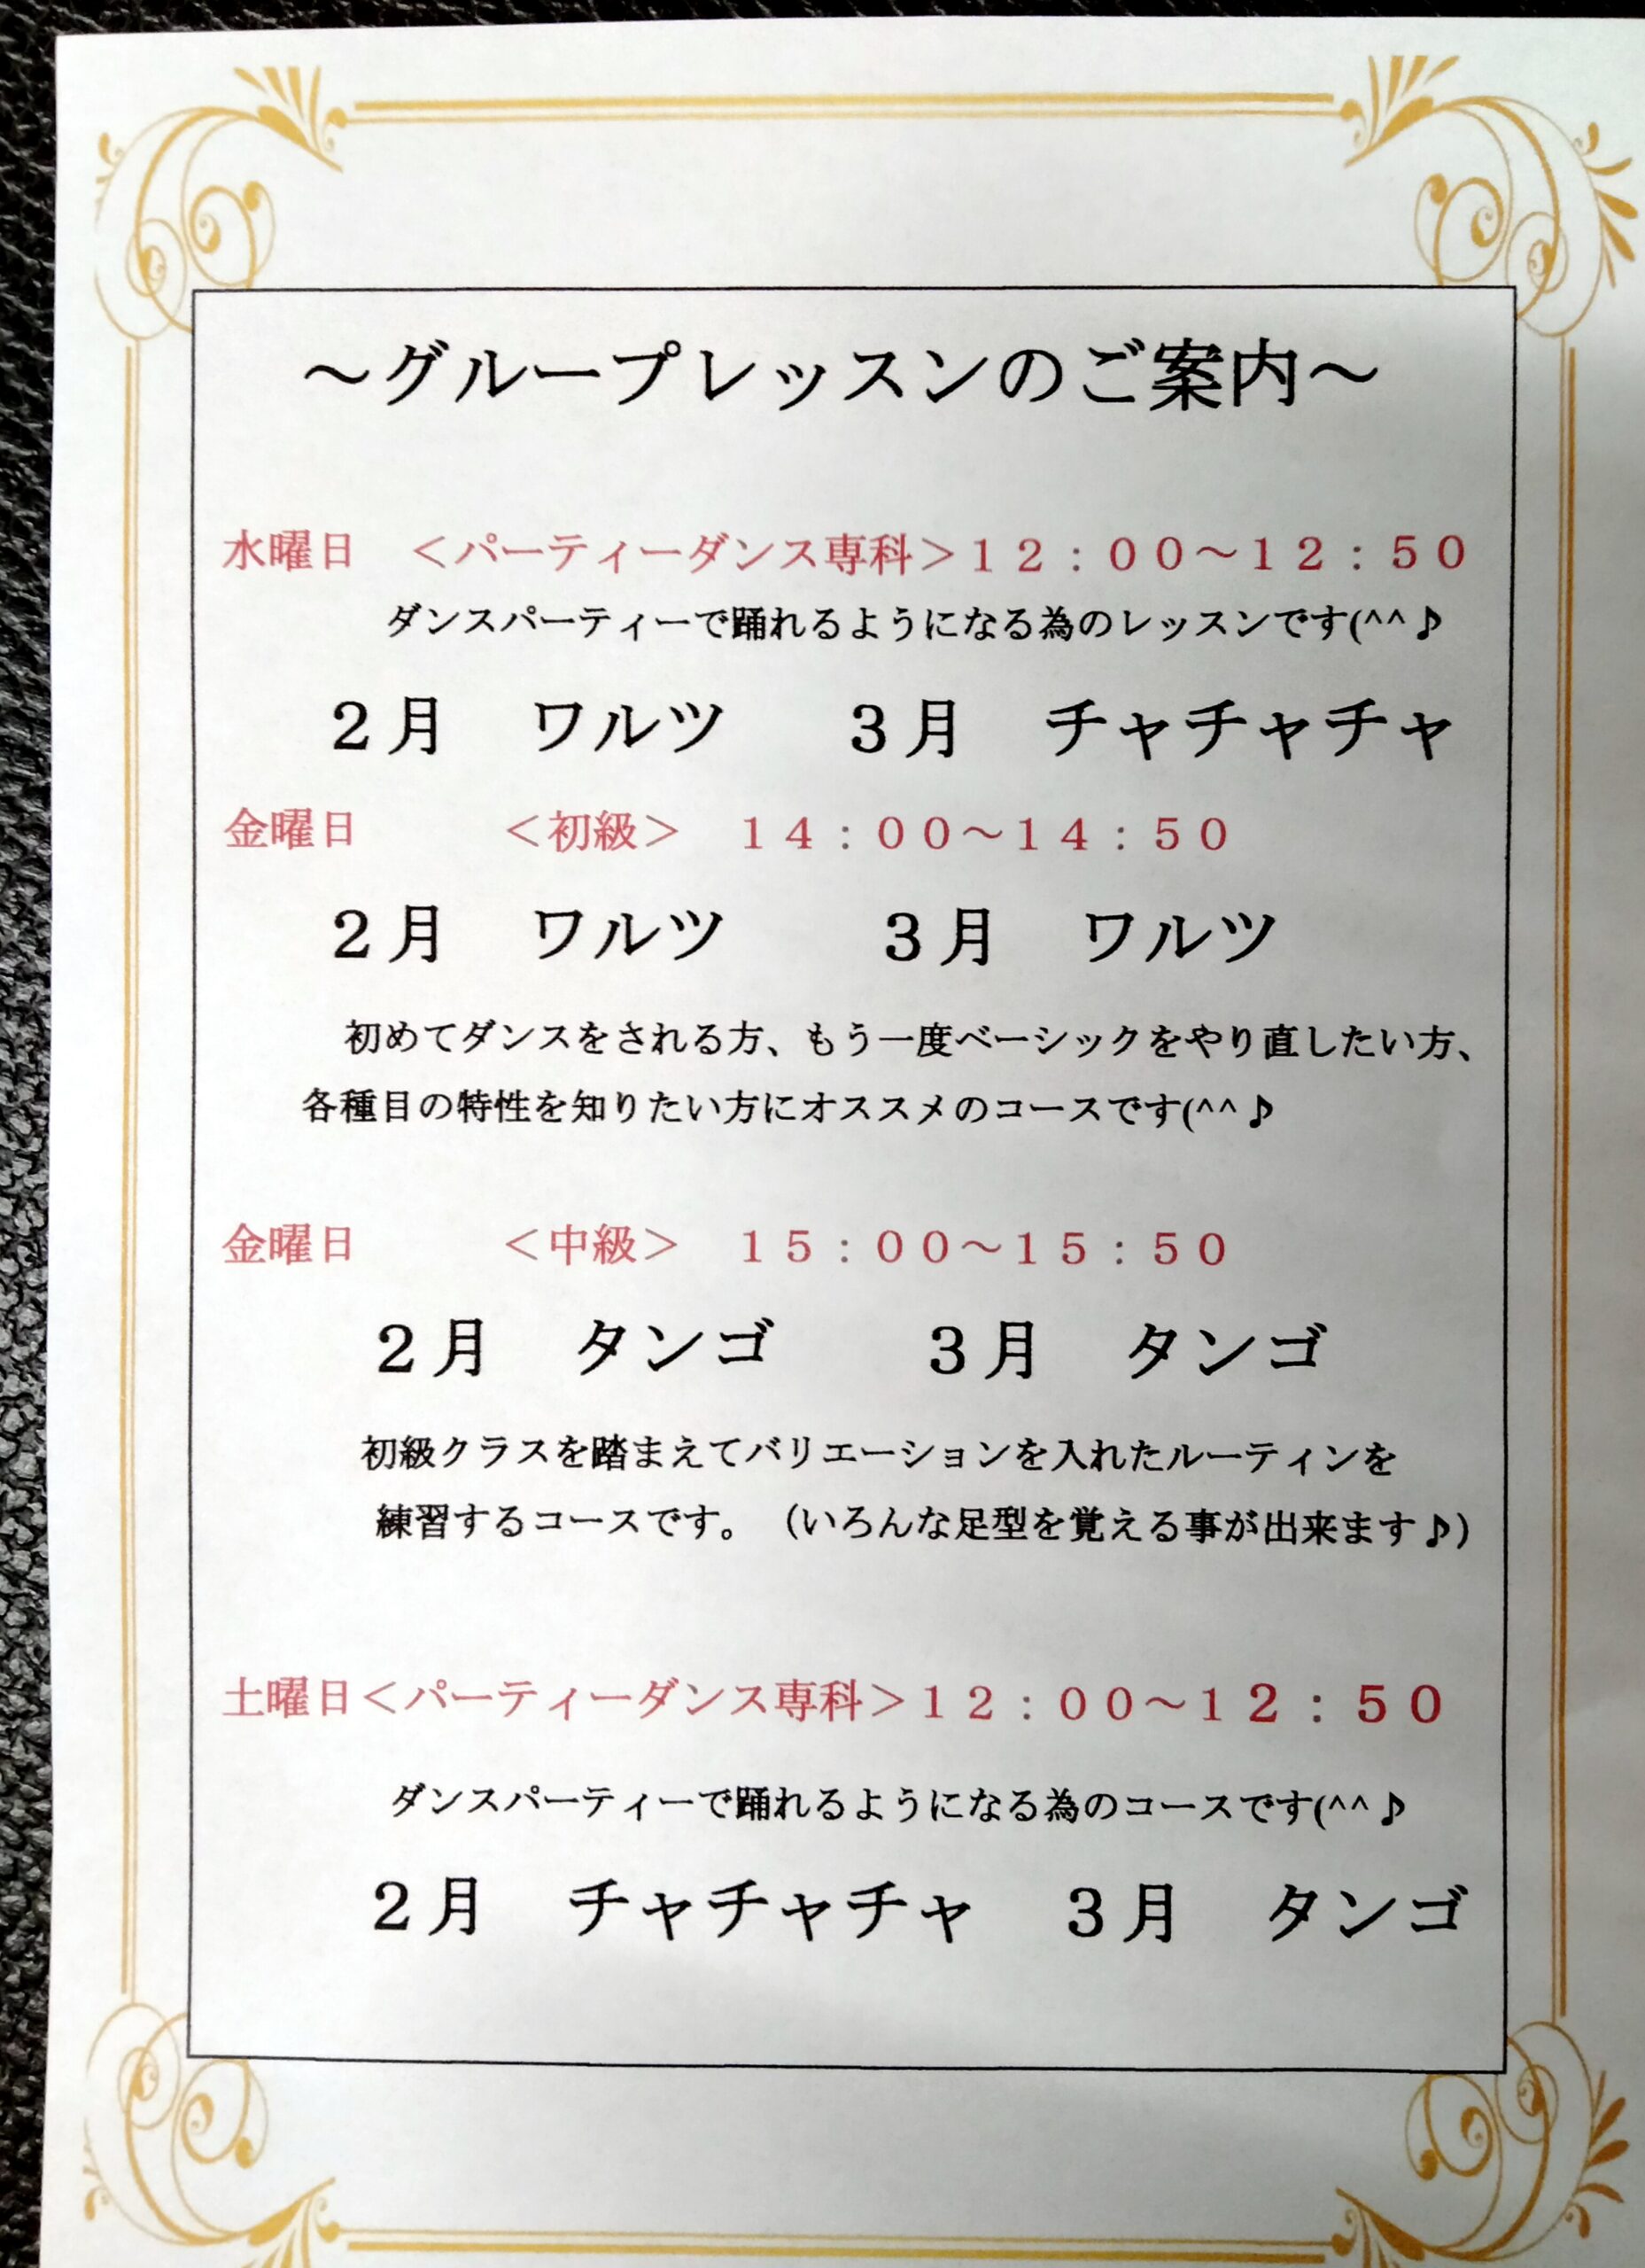 ～グループレッスンのご案内～
水曜日　＜パーティーダンス専科＞１２：００～１２：５０
ダンスパーティーで踊れるようになる為のレッスンです(^^♪
２月　ワルツ　　３月　チャチャチャ
金曜日　　　＜初級＞　１４：００～１４：５０
２月　ワルツ　　　３月　ワルツ
初めてダンスをされる方、もう一度ベーシックをやり直したい方、
各種目の特性を知りたい方にオススメのコースです(^^♪
金曜日　　　＜中級＞　１５：００～１５：５０
２月　タンゴ　　　３月　タンゴ
初級クラスを踏まえてバリエーションを入れたルーティンを
練習するコースです。（いろんな足型を覚える事が出来ます♪）
土曜日＜パーティーダンス専科＞１２：００～１２：５０
ダンスパーティーで踊れるようになる為のコースです(^^♪
２月　チャチャチャ　３月　タンゴ